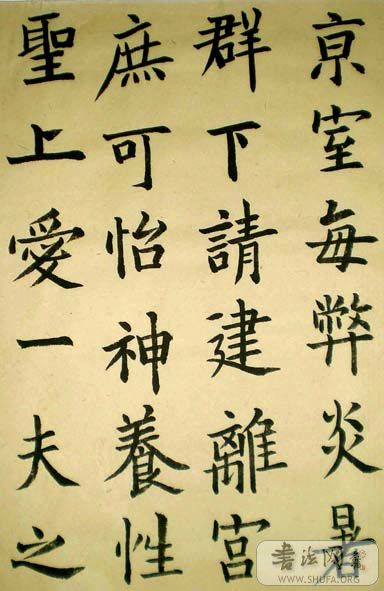 京室每弊炎暑
群下請建離宮
庶可怡神養性
聖上愛一夫之
書法网
WWW.SHUFA.ORG